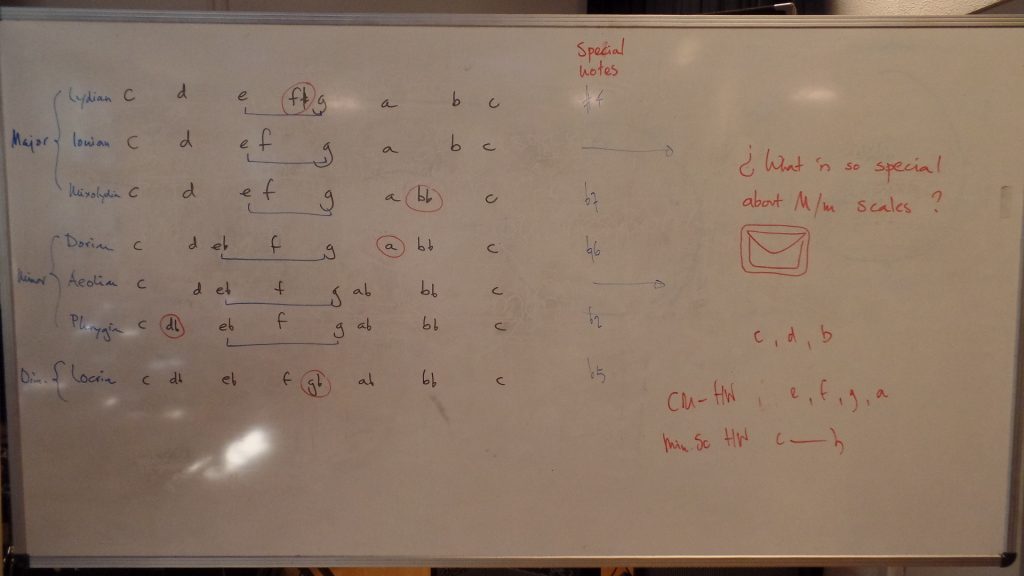 Special
notes
Lydian C d e f# g a b c #4
Major Ionian C d e f g a b c
Mixolydian C d e f g a bb c b7
Dorian C d eb f g a bb c ♮6
Minor Aeolian C d eb f g ab bb c
Phrygian C db eb f g ab bb c b2
Dim. Locrian C db eb f gb ab bb c b5
¿ What is so special
about M/m scales ?
c, d, b
CM-HW : e, f, g, a
min. Sc HW c — b